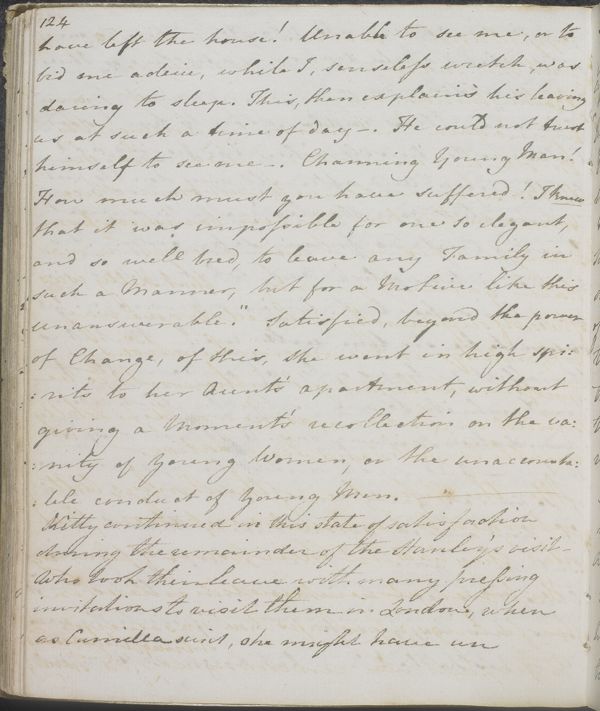 124
have left the house! Unable to see me, or to
bid me adeiu, while I, senseless wretch, was
daring to sleep. This, then explains his leaving
us at such a time of day—. He could not trust
himself to see me—. Charming Young Man!
How much must you have suffered! I knew
that it was impossible for one so elegant,
and so well bred, to leave any Family in
such a Manner, but for a Motive like this
unanswerable." Satisfied, beyond the power
of Change, of this, she went in high spi:
:rits to her Aunt's apartment, without
giving a Moment's recollection on the va:
:nity of Young Women, or the unaccounta:
:ble conduct of Young Men.
Kitty continued in this state of satisfaction
during the remainder of the Stanley's visit—
Who took their leave with many pressing
invitations to visit them in London, when
as Camilla said, she might have an